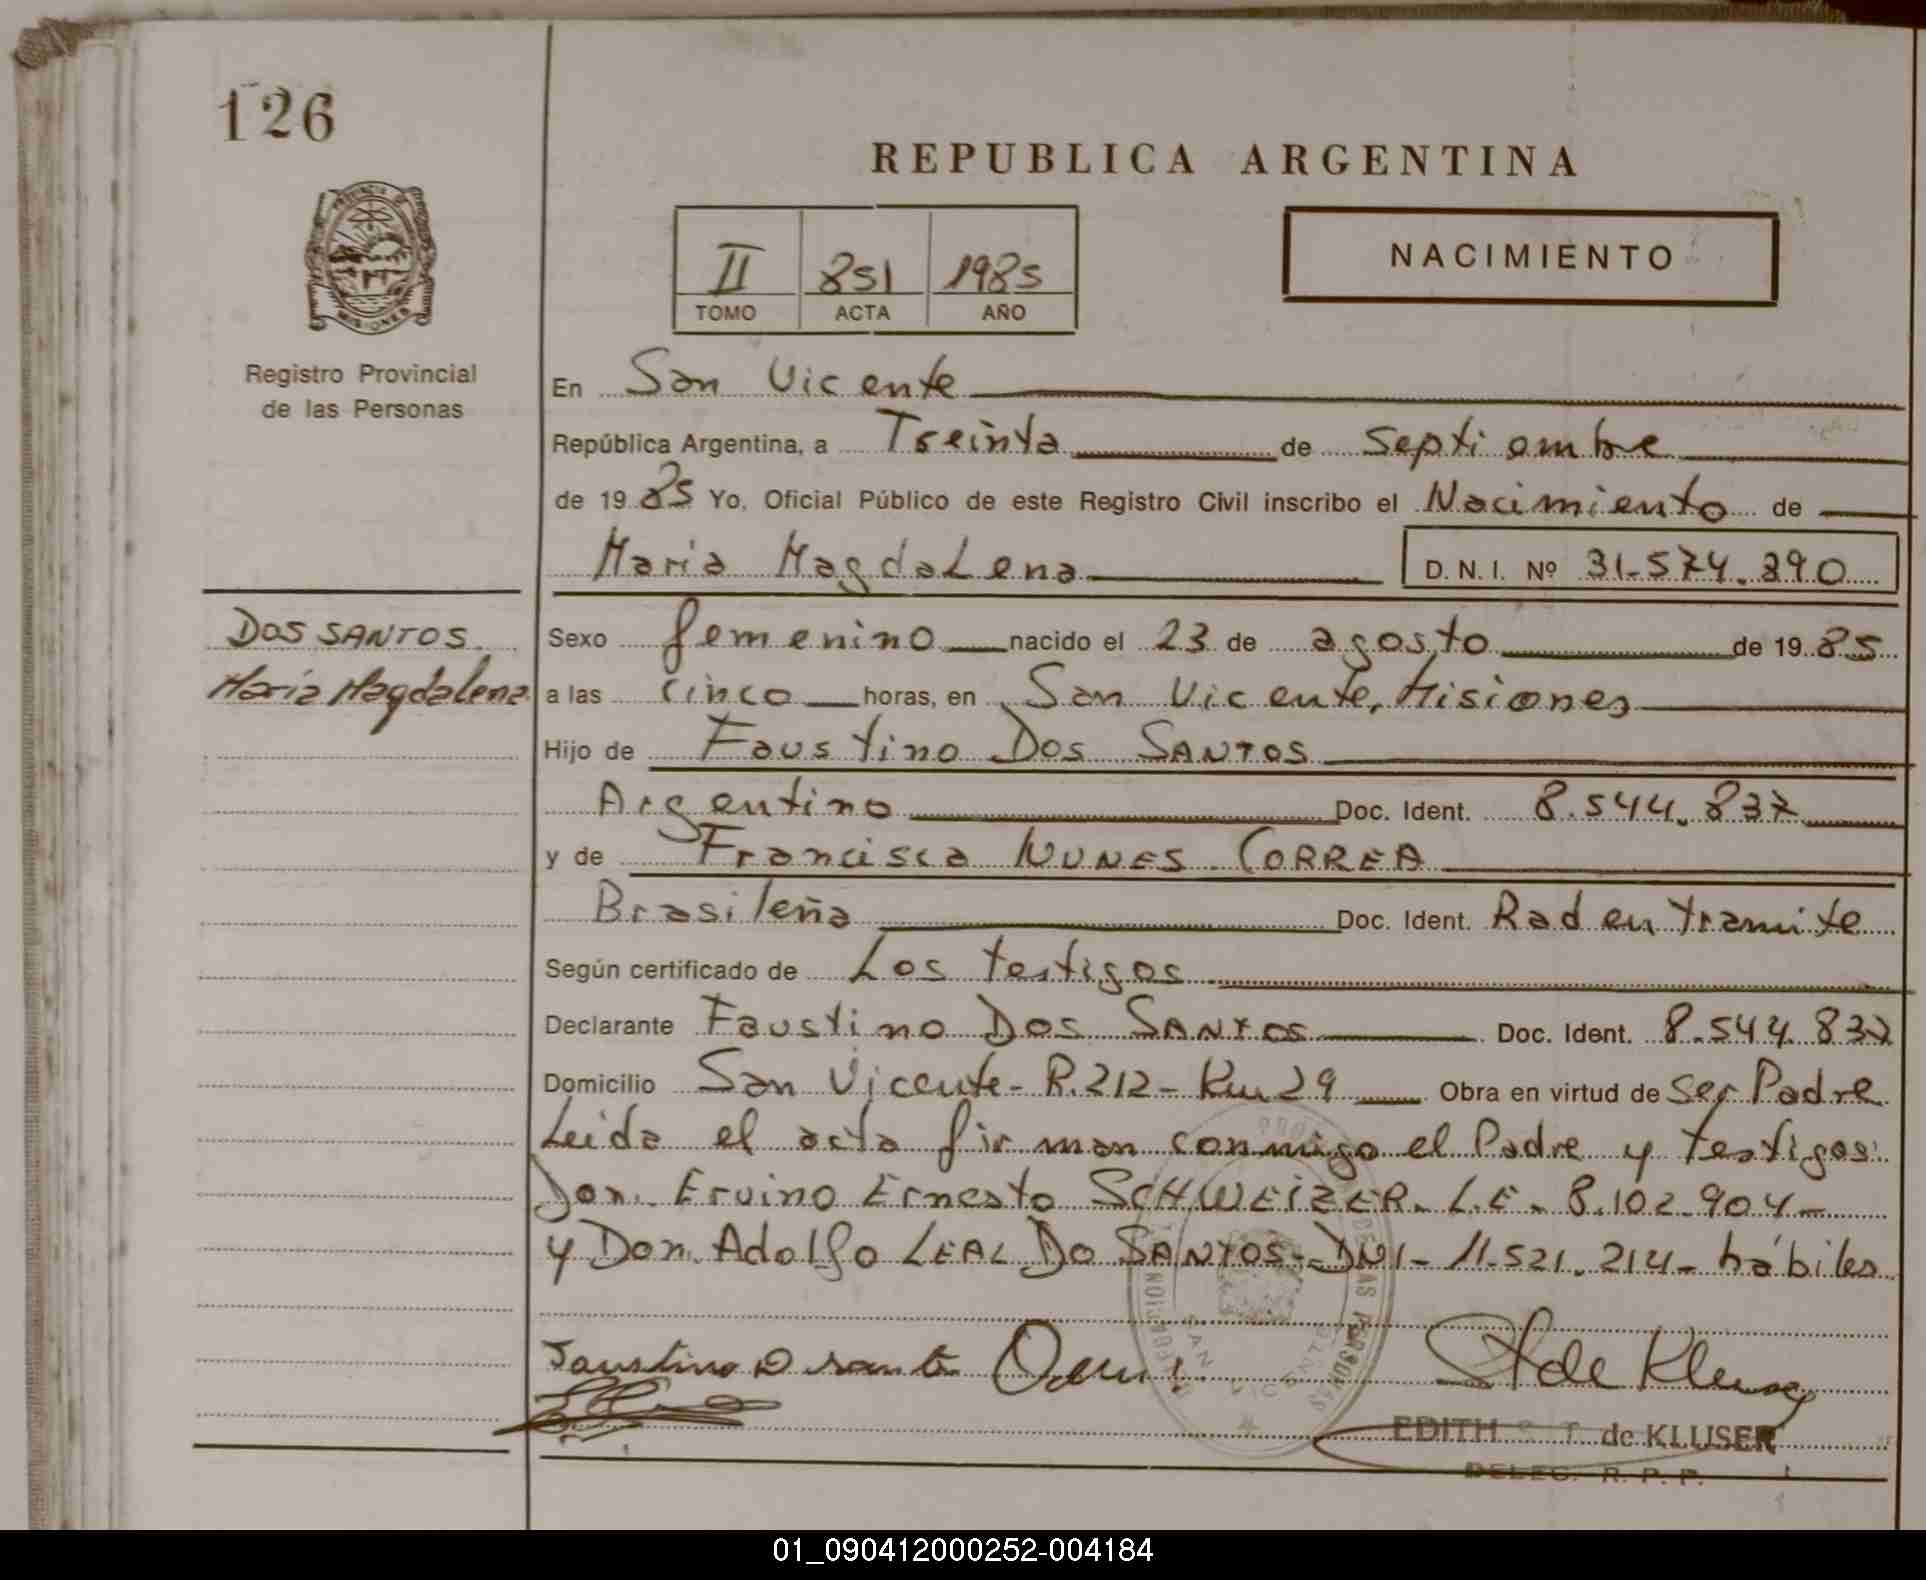 126
REPUBLICA ARGENTINA
PROVINCIA DE
MISIONES
II 851 1985
TOMO ACTA AÑO
NACIMIENTO
Registro Provincial
de las Personas
En San Vicente
República Argentina, a Treinta de Septiembre
de 1985 Yo, Oficial Público de este Registro Civil inscribo el Nacimiento de
Maria Magdalena D. N. I. Nº 31.574.390
DOS SANTOS
María Magdalena
Sexo femenino nacido el 23 de agosto de 1985
a las cinco horas, en San Vicente, Misiones
Hijo de Faustino Dos SANTOS
Argentino Doc. Ident. 8.544.837
y de Francisca NUNES CORREA
Brasileña Doc. Ident. Rad en tramite
Según certificado de Los testigos
Declarante Faustino Dos SANTOS Doc. Ident. 8.544.837
Domicilio San Vicente - R.212 - Km 29 Obra en virtud de Ser Padre
Leida el acta firman conmigo el Padre y testigos:
Don. Ervino Ernesto SCHWEIZER. L.E. 8.102.904 -
y Don. Adolfo LEAL DO SANTOS - DNI - 11.521.214 - hábiles
SAN VICENTE
DE LAS PERSONAS
Faustino D santo
de Kluser
EDITH S. T. de KLUSER
DELEG. R. P. P.
01_090412000252-004184